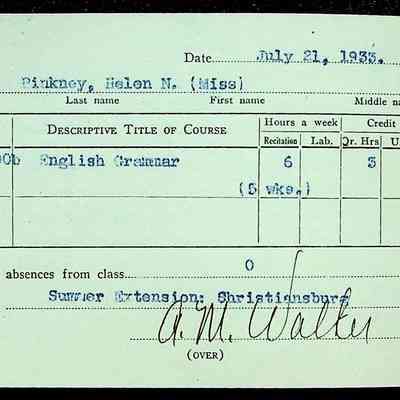 Date July 21, 1933.
Pinkney, Helen N. (Miss)
Last name First name Middle na
DESCRIPTIVE TITLE OF COURSE Hours a week Credit
Recitation Lab. Qr. Hrs U
00b English Grammar 6 3
(5 wks.)
absences from class 0
Summer Extension: Christiansburg
A. M. Walker
(OVER)